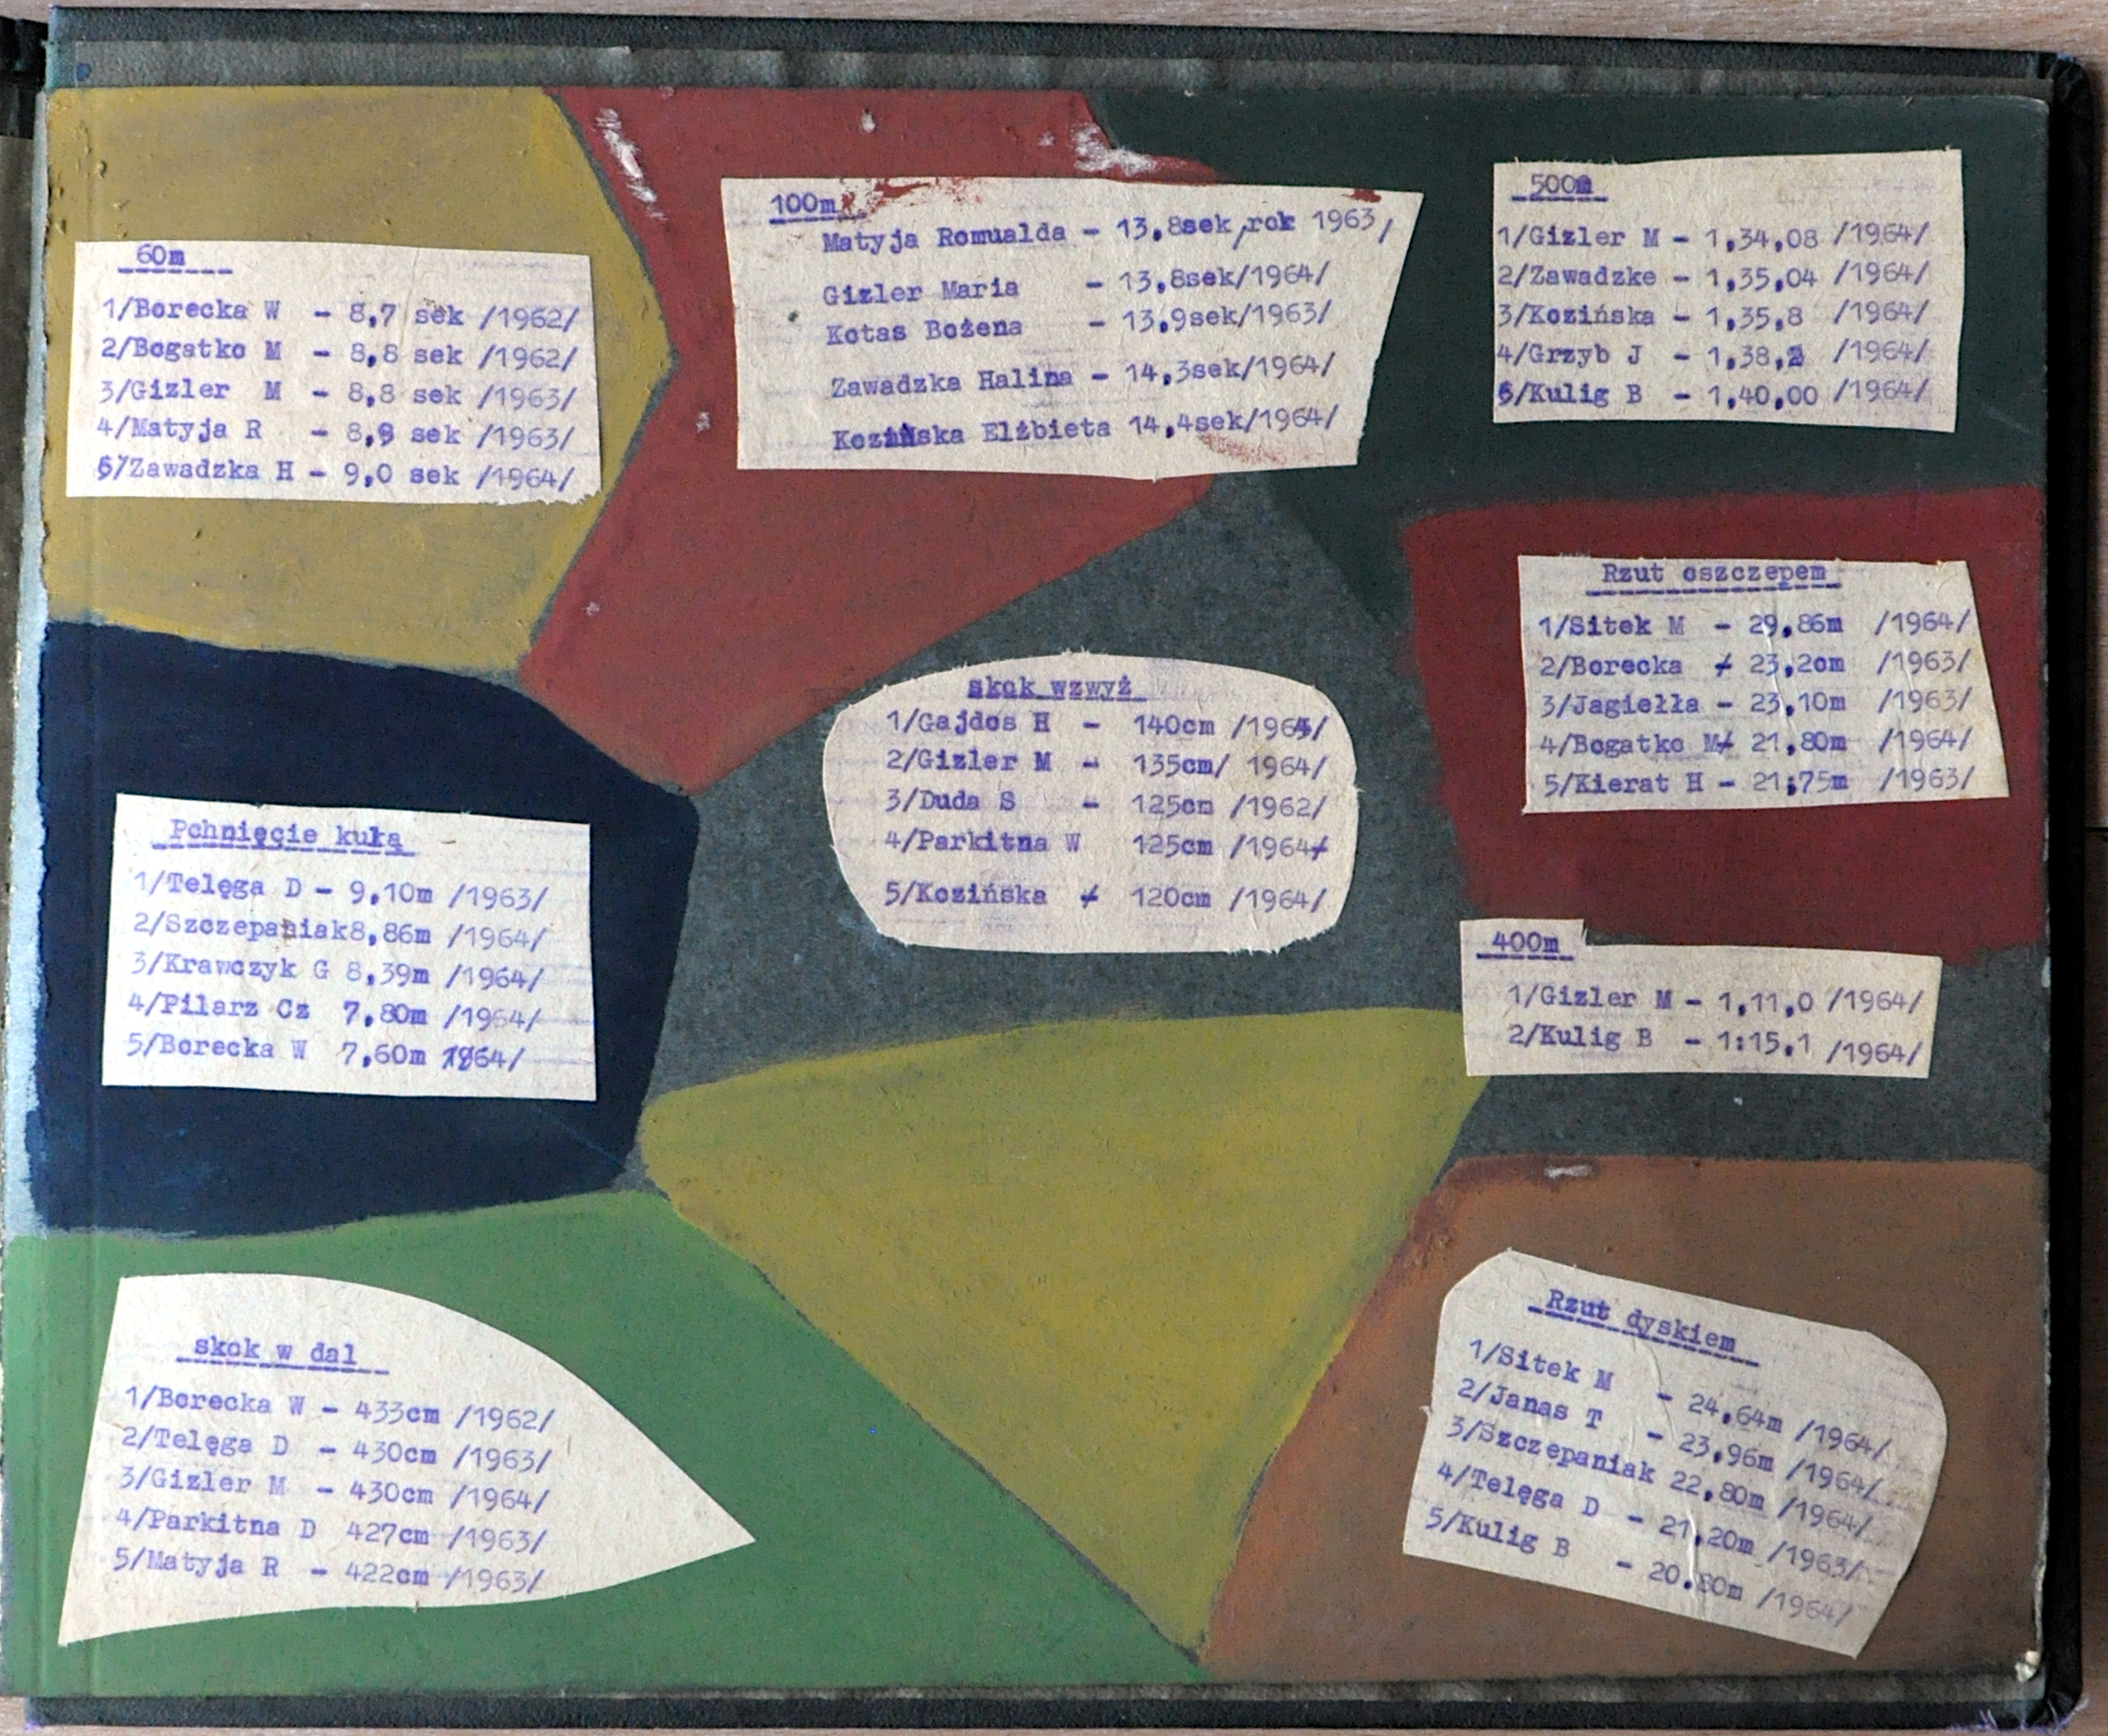 60m
1/Borecka W - 8,7 sek /1962/
2/Bogatko M - 8,8 sek /1962/
3/Gizler M - 8,8 sek /1963/
4/Matyja R - 8,9 sek /1963/
5/Zawadzka H - 9,0 sek /1964/
100m
Matyja Romualda - 13,8sek,rok 1963,
Gizler Maria - 13,8sek/1964/
Kotas Bożena - 13,9sek/1963/
Zawadzka Halina - 14,3sek/1964/
Kozińska Elżbieta 14,4sek/1964/
500m
1/Gizler M - 1,34,08 /1964/
2/Zawadzke - 1,35,04 /1964/
3/Kozińska - 1,35,8 /1964/
4/Grzyb J - 1,38,2 /1964/
5/Kulig B - 1,40,00 /1964/
Rzut oszczepem
1/Sitek M - 29,86m /1964/
2/Borecka - 23,20m /1963/
3/Jagiełła - 23,10m /1963/
4/Bogatko M- 21,80m /1964/
5/Kierat H - 21;75m /1963/
skok wzwyż
1/Gajdos H - 140cm /1964/
2/Gizler M - 135cm/ 1964/
3/Duda S - 125cm /1962/
4/Parkitna W 125cm /1964/
5/Kozińska - 120cm /1964/
Pchnięcie kulą
1/Telęga D - 9,10m /1963/
2/Szczepaniak8,86m /1964/
3/Krawczyk G 8,39m /1964/
4/Pilarz Cz 7,80m /1964/
5/Borecka W 7,60m 1964/
400m
1/Gizler M - 1,11,0 /1964/
2/Kulig B - 1:15,1 /1964/
skok w dal
1/Borecka W - 433cm /1962/
2/Telęga D - 430cm /1963/
3/Gizler M - 430cm /1964/
4/Parkitna D 427cm /1963/
5/Matyja R - 422cm /1963/
Rzut dyskiem
1/Sitek M - 24,64m /1964/
2/Janas T - 23,96m /1964/
3/Szczepaniak 22,80m /1964/
4/Telęga D - 21,20m /1963/
5/Kulig B - 20.80m /1964/